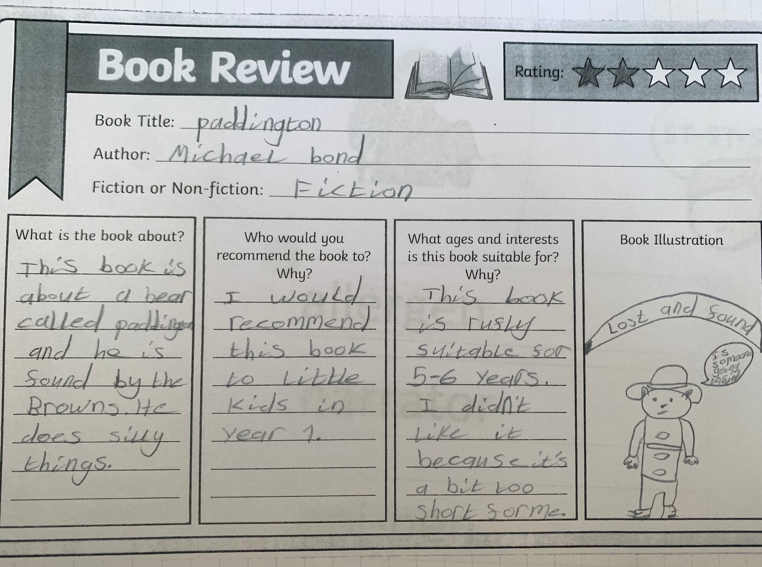 Book Review
Rating:
Book Title: paddington
Author: Michael bond
Fiction or Non-fiction: Fiction
What is the book about?
This book is
about a bear
called paddington
and he is
found by the
Browns. He
does silly
things.
Who would you
recommend the book to?
Why?
I would
recommend
this book
to little
kids in
year 1.
What ages and interests
is this book suitable for?
Why?
This book
is rusly
suitable for
5-6 years.
I didn't
like it
because it's
a bit too
short for me
Book Illustration
Lost and found